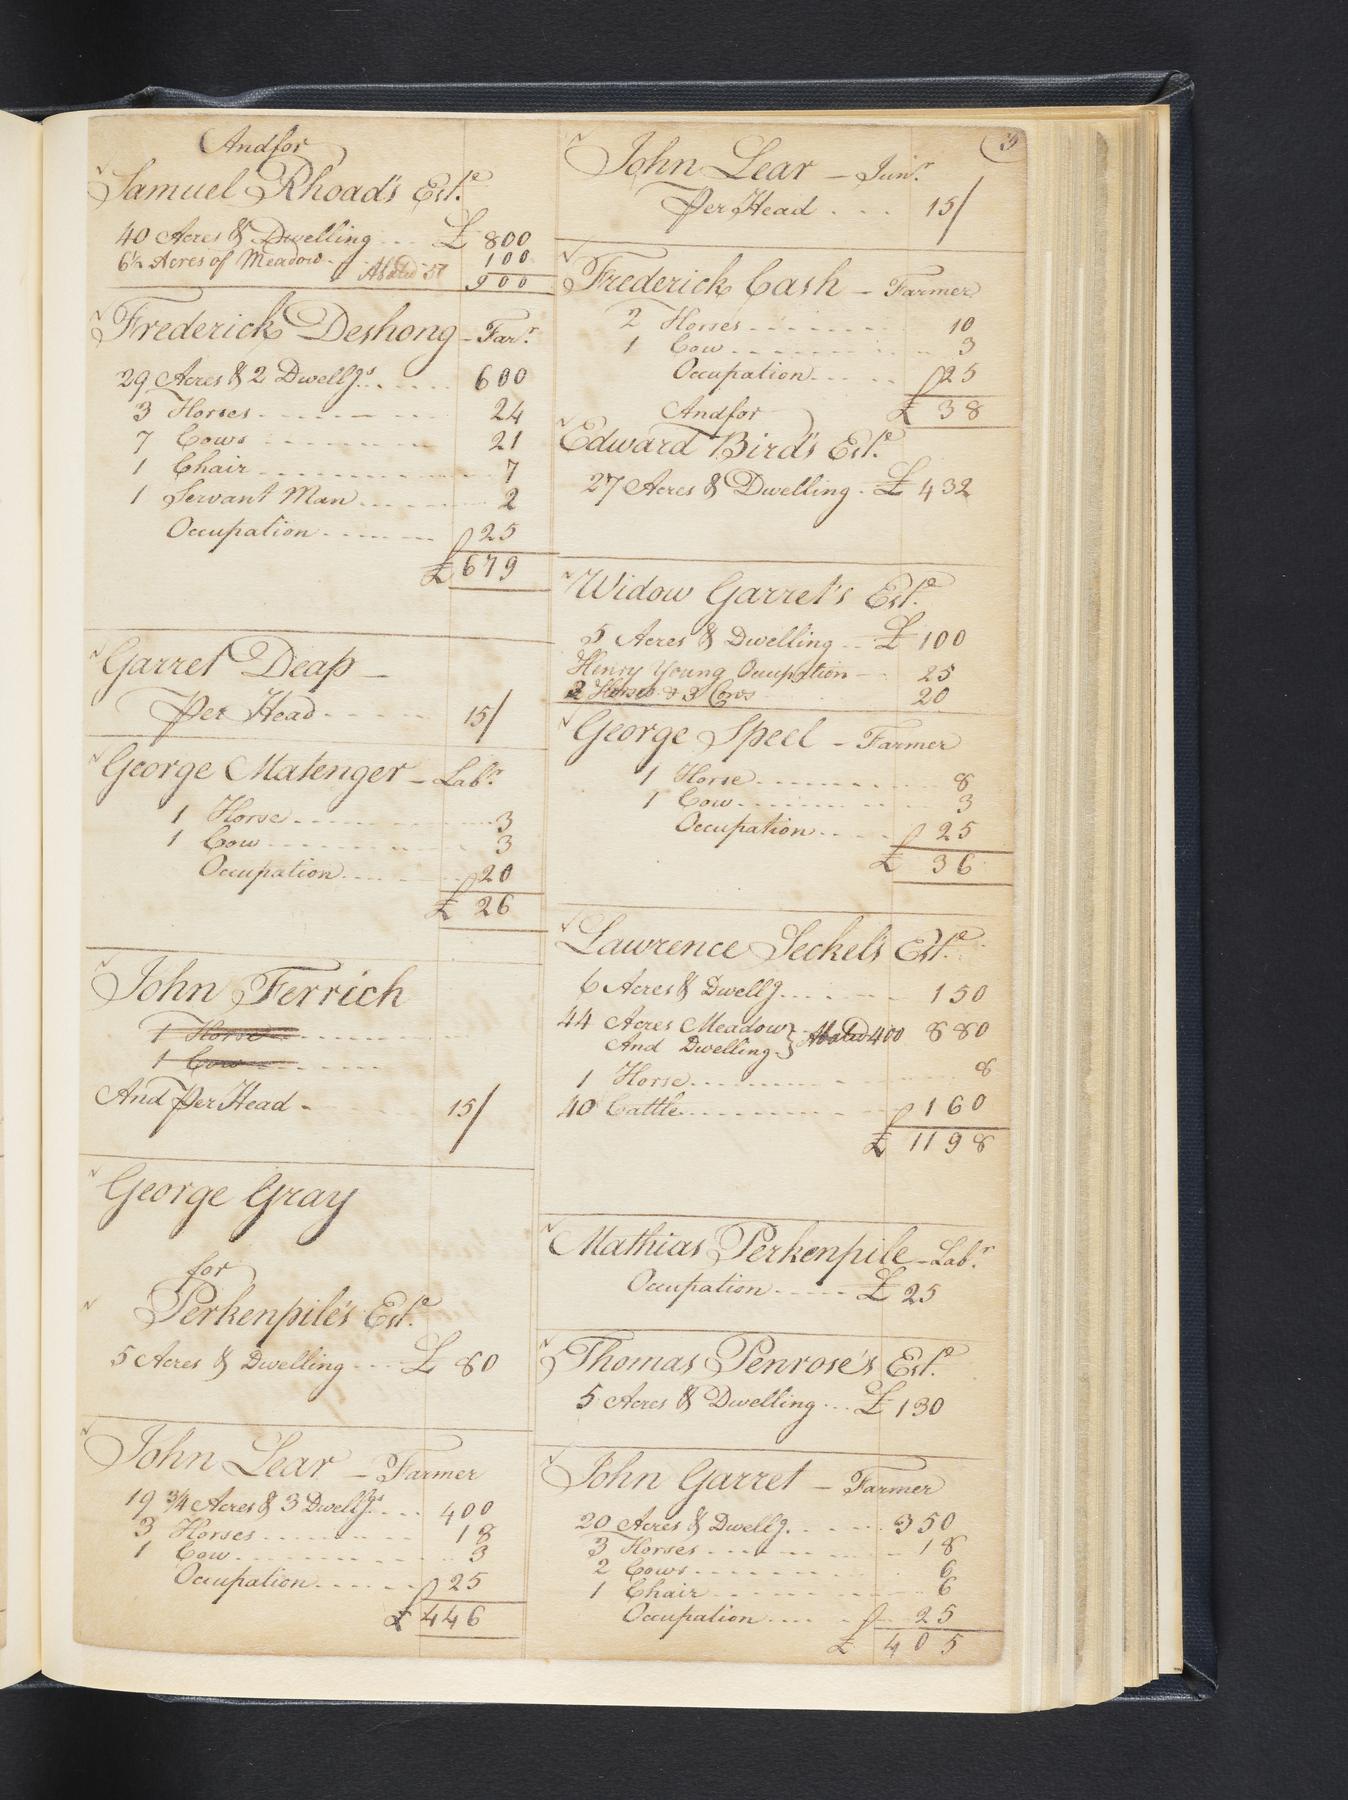 Andfor
Samuel Rhoad's Est.e
40 Acres & Dwelling ... £ 800
6½ Acres of Meadow 100
Abated 50 900
Frederick Deshong - Far.r
29 Acres & 2 Dwellg.s 600
3 Horses 24
7 Cows 21
1 Chair 7
1 Servant Man 2
Occupation 25
£ 679
Garret Deap -
Per Head 15/
George Matenger - Lab.r
1 Horse 3
1 Cow 3
Occupation 20
£ 26
John Ferrich
1 Horse
1 Cow
And Per Head - 15/
George Gray
for
Perkenpile's Est.e
5 Acres & Dwelling £ 80
John Lear - Farmer
19 3/4 Acres & 3 Dwellg.s 400
3 Horses 18
1 Cow 3
Occupation 25
£ 446
5
John Lear - Jun.r
Per Head 15/
Frederick Cash - Farmer
2 Horses 10
1 Cow 3
Occupation 25
Andfor £ 38
Edward Bird's Est.e
27 Acres & Dwelling . £ 432
Widow Garret's Est.e
5 Acres & Dwelling £ 100
Henry Young Occupation 25
2 Horses & 2 Cows 20
George Speel - Farmer
1 Horse 8
1 Cow 3
Occupation 25
£ 36
Lawrence Seckel's Est.e
6 Acres & Dwellg. 150
44 Acres Meadow } Abated 400 880
And Dwelling
1 Horse 8
40 Cattle 160
£ 1198
Mathias Perkenpile - Lab.r
Occupation £ 25
Thomas Penrose's Est.e
5 Acres & Dwelling ... £ 130
John Garret - Farmer
20 Acres & Dwellg. 350
3 Horses 18
2 Cows 6
1 Chair 6
Occupation 25
£ 405